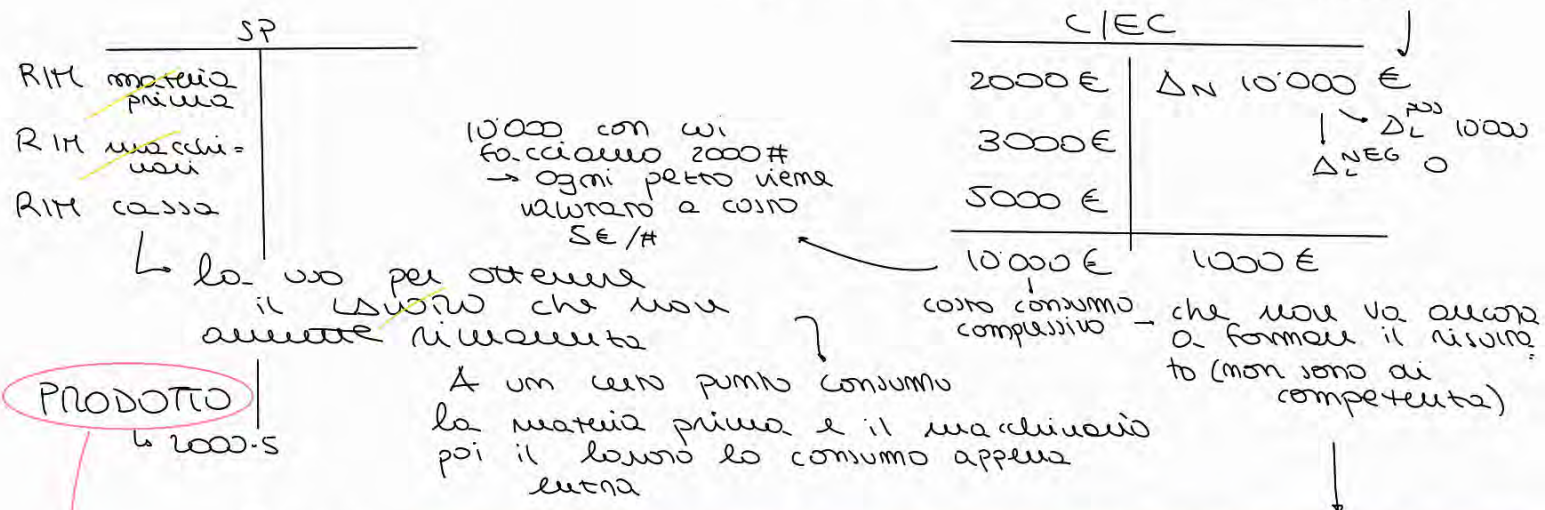 SP
RIM materia
prima
RIM macchi=
nari
RIM cassa
↳ lo uso per ottenere
il LAVORO che non
ammette rimanenza
PRODOTTO
↳ 2000·5
10'000 con cui
facciamo 2000#
→ ogni pezzo viene
valutato a costo
5€/#
A un certo punto consumo
la materia prima e il macchinario
poi il lavoro lo consumo appena
entra
C/EC
2000€ ΔN 10'000 €
3000€ ΔL POS 10'000
5000 € ΔL NEG 0
10'000 € 1000 €
costo consumo
complessivo → che non va ancora
a formare il risulta=
to (non sono di
competenza)